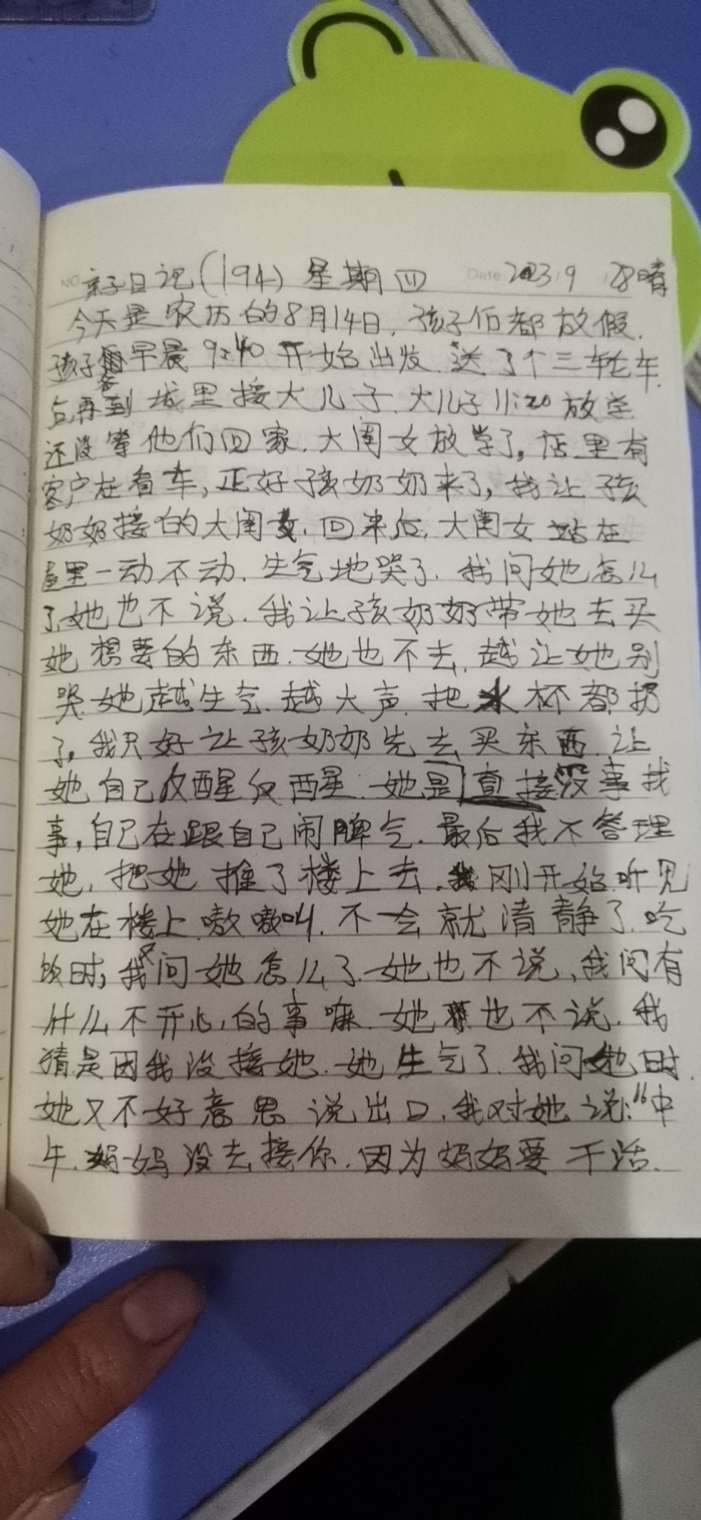 亲子日记(194) 星期四 Date 2023 9 28晴
今天是农历的8月14日，孩子们都放假.
孩子爸早晨9:40开始出发.送了个三轮车.
后再到城里接大儿子.大儿子11:20放学
还没等他们回家.大闺女放学了,店里有
客户在看车,正好孩奶奶来了,我让孩
奶奶接的大闺女,回来后,大闺女站在
屋里一动不动.生气地哭了.我问她怎么
了她也不说.我让孩奶奶带她去买
她想要的东西.她也不去.越让她别
哭她越生气.越大声.把水杯都扔
了,我只好让孩奶奶先去买东西.让
她自己反醒反西星.她是直接没事找
事,自己在跟自己闹脾气.最后我不管理
她.把她推了楼上去.刚开始听见
她在楼上嗷嗷叫.不一会就清静了.吃
饭时,我又问她怎么了.她也不说,我问有
什么不开心的事嘛.她也不说.我
猜是因我没接她.她生气了.我问她时.
她又不好意思说出口.我对她说:“中
午.妈妈没去接你.因为妈妈要干活.